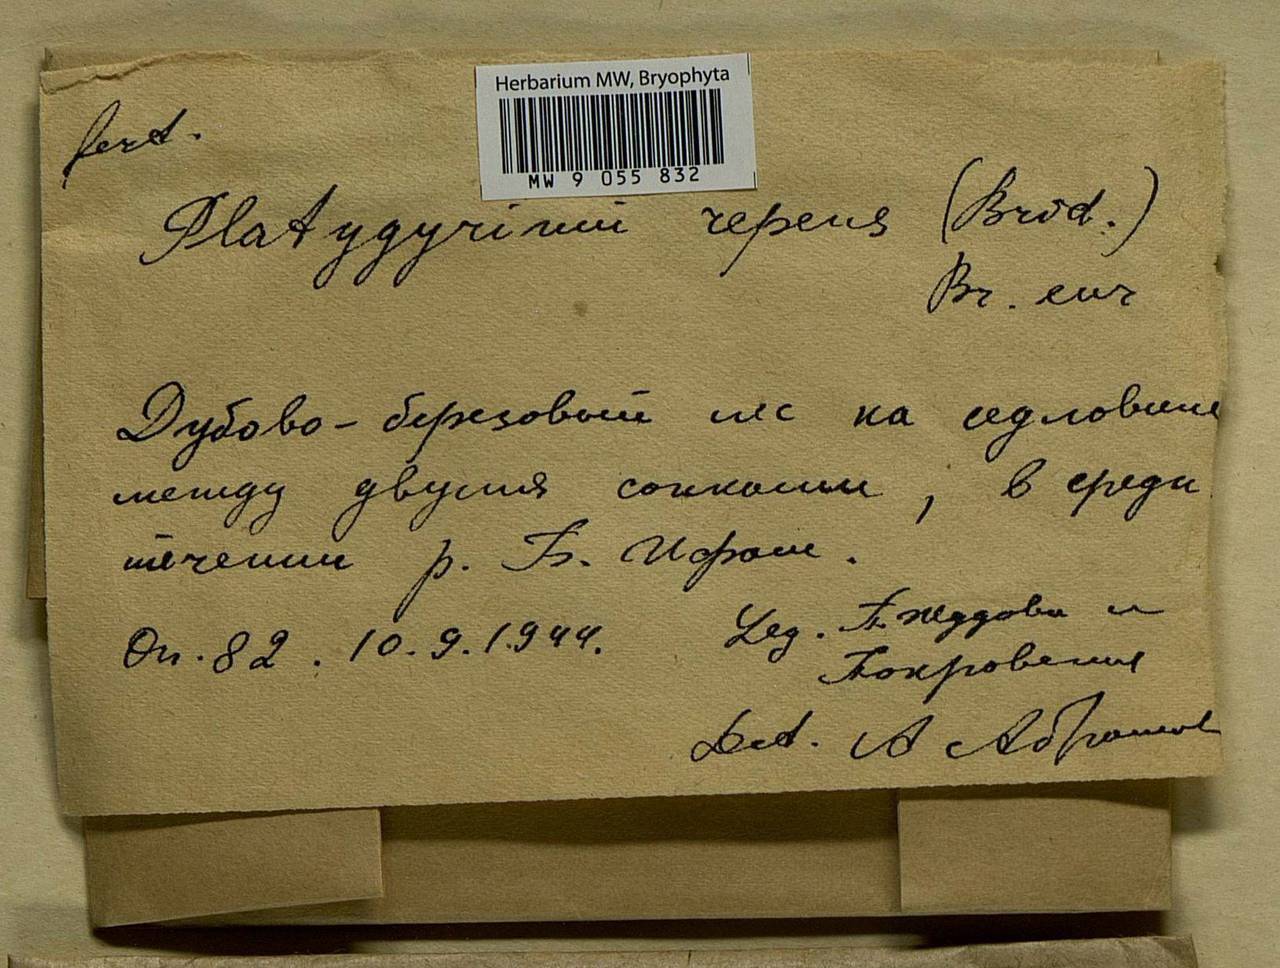 Herbarium MW, Bryophyta
MW 9 055 832
fert.
Platygyrium repens (Brid.)
Br. eur
Дубово-березовый лес на седловине
между двумя сопками, в средн
течении р. Б.
Оп. 82. 10.9.1944.
Leg. и
Покровская
Det. А Абрамов